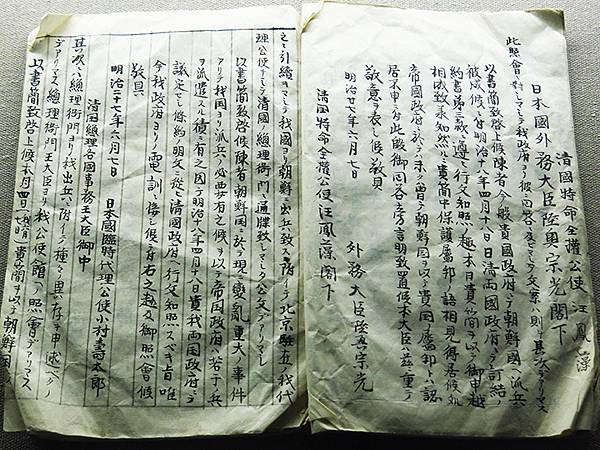 清國特命全權公使 汪鳳藻
日本國外務大臣陸奧宗光閣下
此照會ニ對シマシテ我政府ヨリ彼ニ答シマシタ文案ハ則チ其次デアリマス
以書簡致啓上候陳者今般貴國政府ニテ朝鮮國ヘ派兵
被成候ハ付明治十八年四月十八日日清両國政府ニテ訂結ノ
約書第三款ニ遵ヒ行文知照ノ趣本日貴簡ヲ以テ御申越
相成致承知候然ルニ貴簡中保護屬邦ノ語相見得居候処
帝國政府ニ於テハ未タ曾テ朝鮮國ヲ以テ貴國ノ屬邦トハ認
居不申付此段御回答旁言明致置候本大臣ハ茲ニ重テ
敬意ヲ表シ候敬具
明治廿七年六月七日
外務大臣陸奥宗光
清國特命全權公使汪鳳藻閣下
之ニ引續キマシテ我國ヨリ朝鮮ニ出兵致スニ附イテ北京駐在ノ我代
理公使ヲシテ清國ノ總理衙門ニ通牒致シマシタ公文デアリマシ
以書簡致啓上候陳者朝鮮國ニ於テ現ニ變亂重大ノ事件
アリテ我國ヨリ派兵ノ必要有之候ヲ以テ帝國政府ハ若干ノ兵
ヲ派遣スル積ニ有之因テ明治十八年四月十八日貴我両國政府ニテ
議定シタル條約ノ明文ニ從ヒ清國政府ヘ行文知照スベキ旨唯
今我政府ヨリノ電訓ニ接シ候右之趣及御照會候
敬具
明治二十七年六月七日
日本國臨時代理公使小村壽太郎
清國總理各國事務王大臣御中
其次ハ總理衙門ヨリ我出兵ニ附イテ種々異存ヲ申述ベタノ
デアリマス總理衙門王大臣ヨリ我公使館ヘノ照會デアリマス
以書簡致啓上候本月四日貴簡ヲ以テ朝鮮國ニ